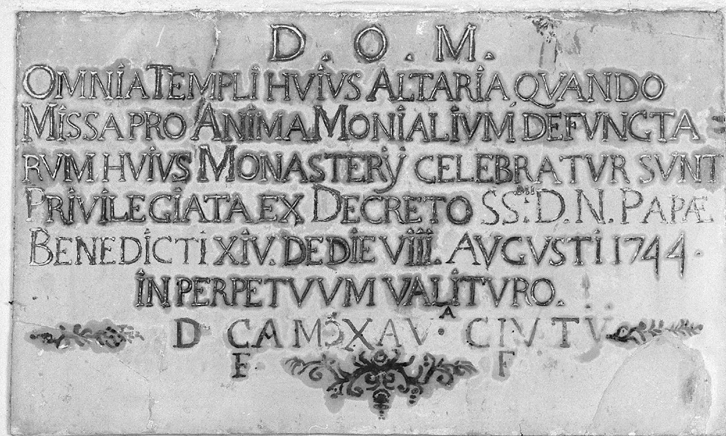 D. O. M.
OMNIA TEMPLI HVIVS ALTARIA QVANDO
MISSA PRO ANIMA MONIALIVM DEFVNCTA
RVM HVIVS MONASTERIJ CELEBRATVR SVNT
PRIVILEGIATA EX DECRETO SS. D. N. PAPÆ
BENEDICTI XIV. DE DIE VIIII. AVGVSTI 1744.
IN PERPETVVM VALITVRO.